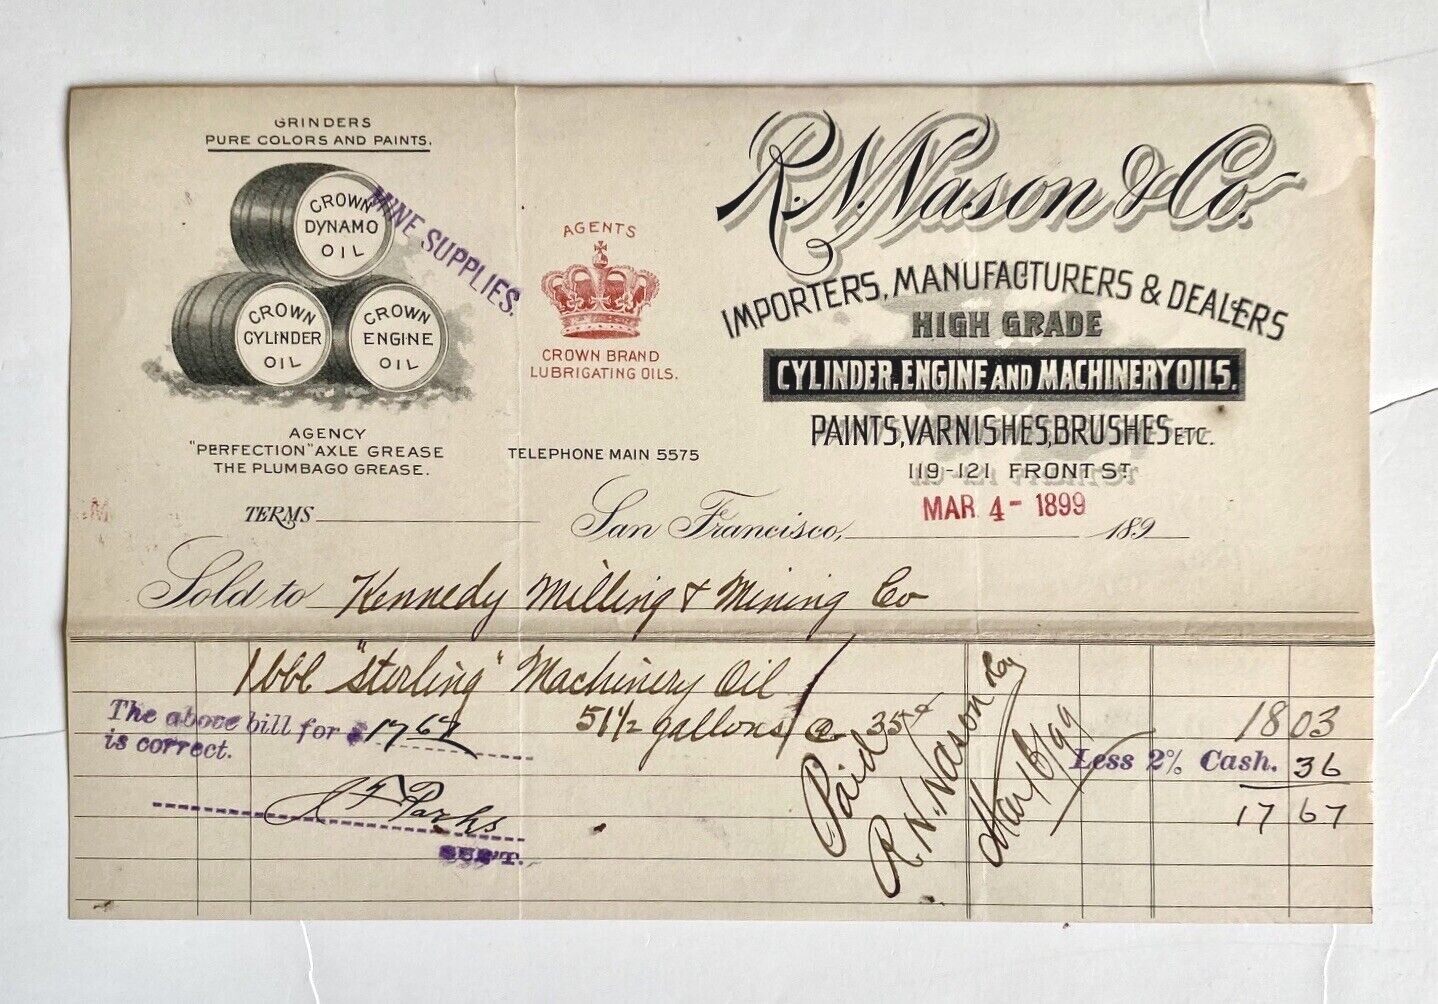 GRINDERS
PURE COLORS AND PAINTS.
CROWN
DYNAMO
OIL
CROWN
CYLINDER
OIL
CROWN
ENGINE
OIL
MINE SUPPLIES.
AGENCY
"PERFECTION" AXLE GREASE
THE PLUMBAGO GREASE.
AGENTS
CROWN BRAND
LUBRIGATING OILS.
TELEPHONE MAIN 5575
R. N. Nason & Co.
IMPORTERS, MANUFACTURERS & DEALERS
HIGH GRADE
CYLINDER, ENGINE AND MACHINERY OILS.
PAINTS, VARNISHES, BRUSHES ETC.
119-121 FRONT ST.
M
TERMS
San Francisco, MAR 4- 1899 189
Sold to Kennedy Milling & Mining Co
1 bbl "Sterling" Machinery Oil
51 1/2 gallons @ 35 18 03
The above bill for $17 67
is correct.
Less 2% Cash. 36
17 67
Parks
SUP'T.
Paid
R. N. Nason